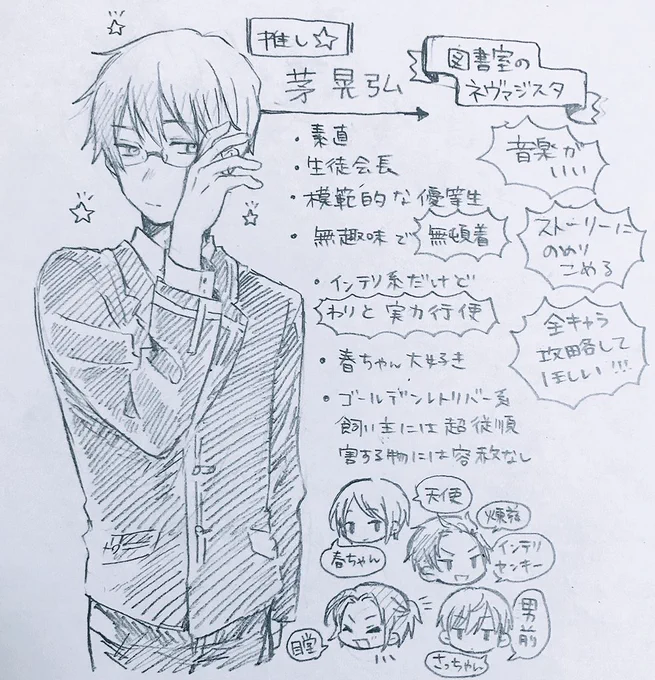 推し☆
茅 晃弘
図書室の
ネヴァジスタ
・素直
・生徒会長
・模範的な優等生
・無趣味で無頓着
・インテリ系だけど
わりと実力行使
・春ちゃん大好き
・ゴールデンレトリバー系
飼い主には超従順
害する物には容赦なし
音楽が
いい
ストーリーに
のめり
こめる
全キャラ
攻略して
ほしい!!!
天使
春ちゃん
煉慈
インテリ
ヤンキー
目堂
男前
さっちゃん